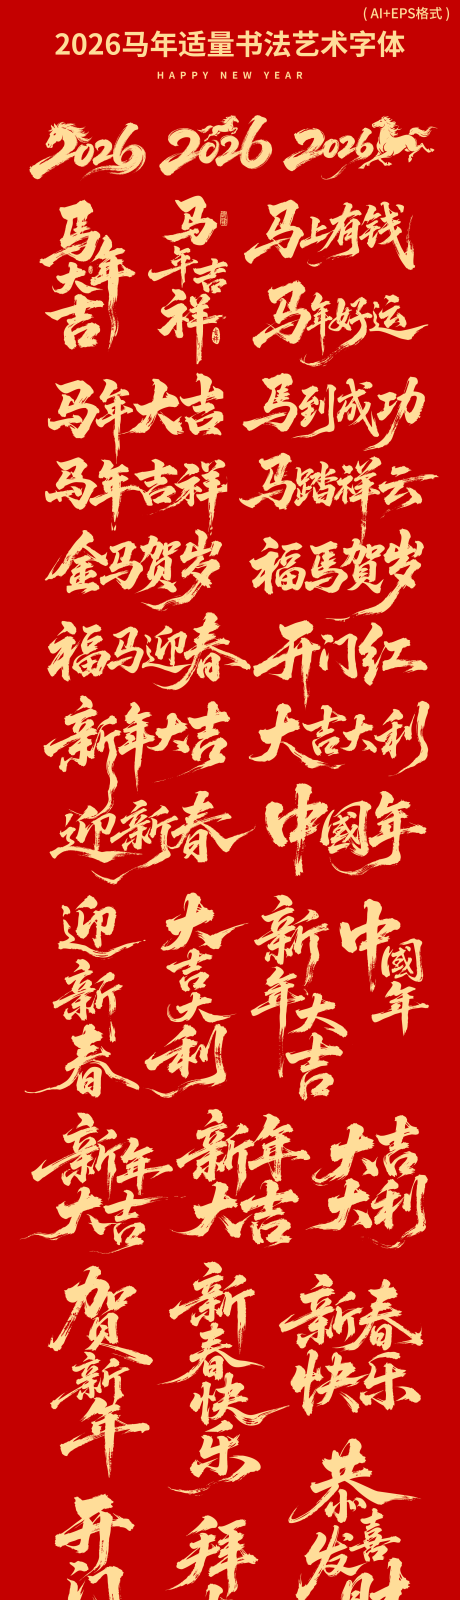 ( AI+EPS格式 )
2026马年适量书法艺术字体
HAPPY NEW YEAR
2026 2026 2026
馬年大吉
马年吉祥
马上有钱
马年好运
马年大吉
馬到成功
马年吉祥
马踏祥云
金马贺岁
福馬賀岁
福马迎春
开门红
新年大吉
大吉大利
迎新春
中國年
迎新春
大吉大利
新年大吉
中國年
新年大吉
新年大吉
大吉大利
贺新年
新春快乐
新春快乐
恭喜发财
开门
拜